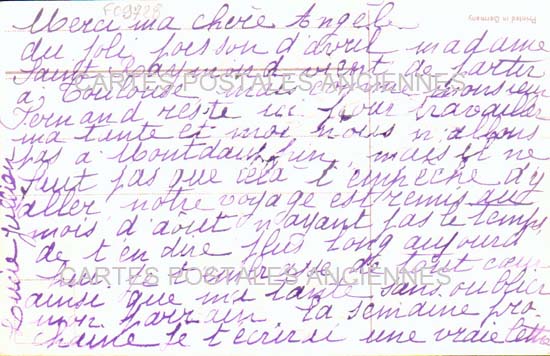 F09928
Printed in Germany
Merci ma chère Angèle
du joli poisson d'avril madame
Saint Raymond vient de partir
à Toulouse mais comme monsieur
Fernand reste ici pour travailler
ma tante et moi nous n'alons
pas à Montdauphin, mais il ne
faut pas que cela t'empeche d'y
aller notre voyage est remis au
mois d'aout n'ayant pas le temps
de t'en dire plus long aujourd
hui je t'embrasse de tout cœur
ainsi que ma tante sans oublier
mon parrain la semaine pro-
chaine je t'écrirai une vraie lettre
Louise Jullian
CARTES POSTALES ANCIENNES
CARTES POSTALES ANCIENNES